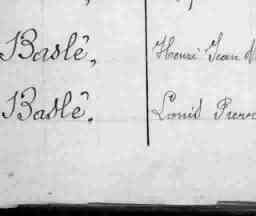 Baslê, Henri Jean
Baslê. Louis Pierre